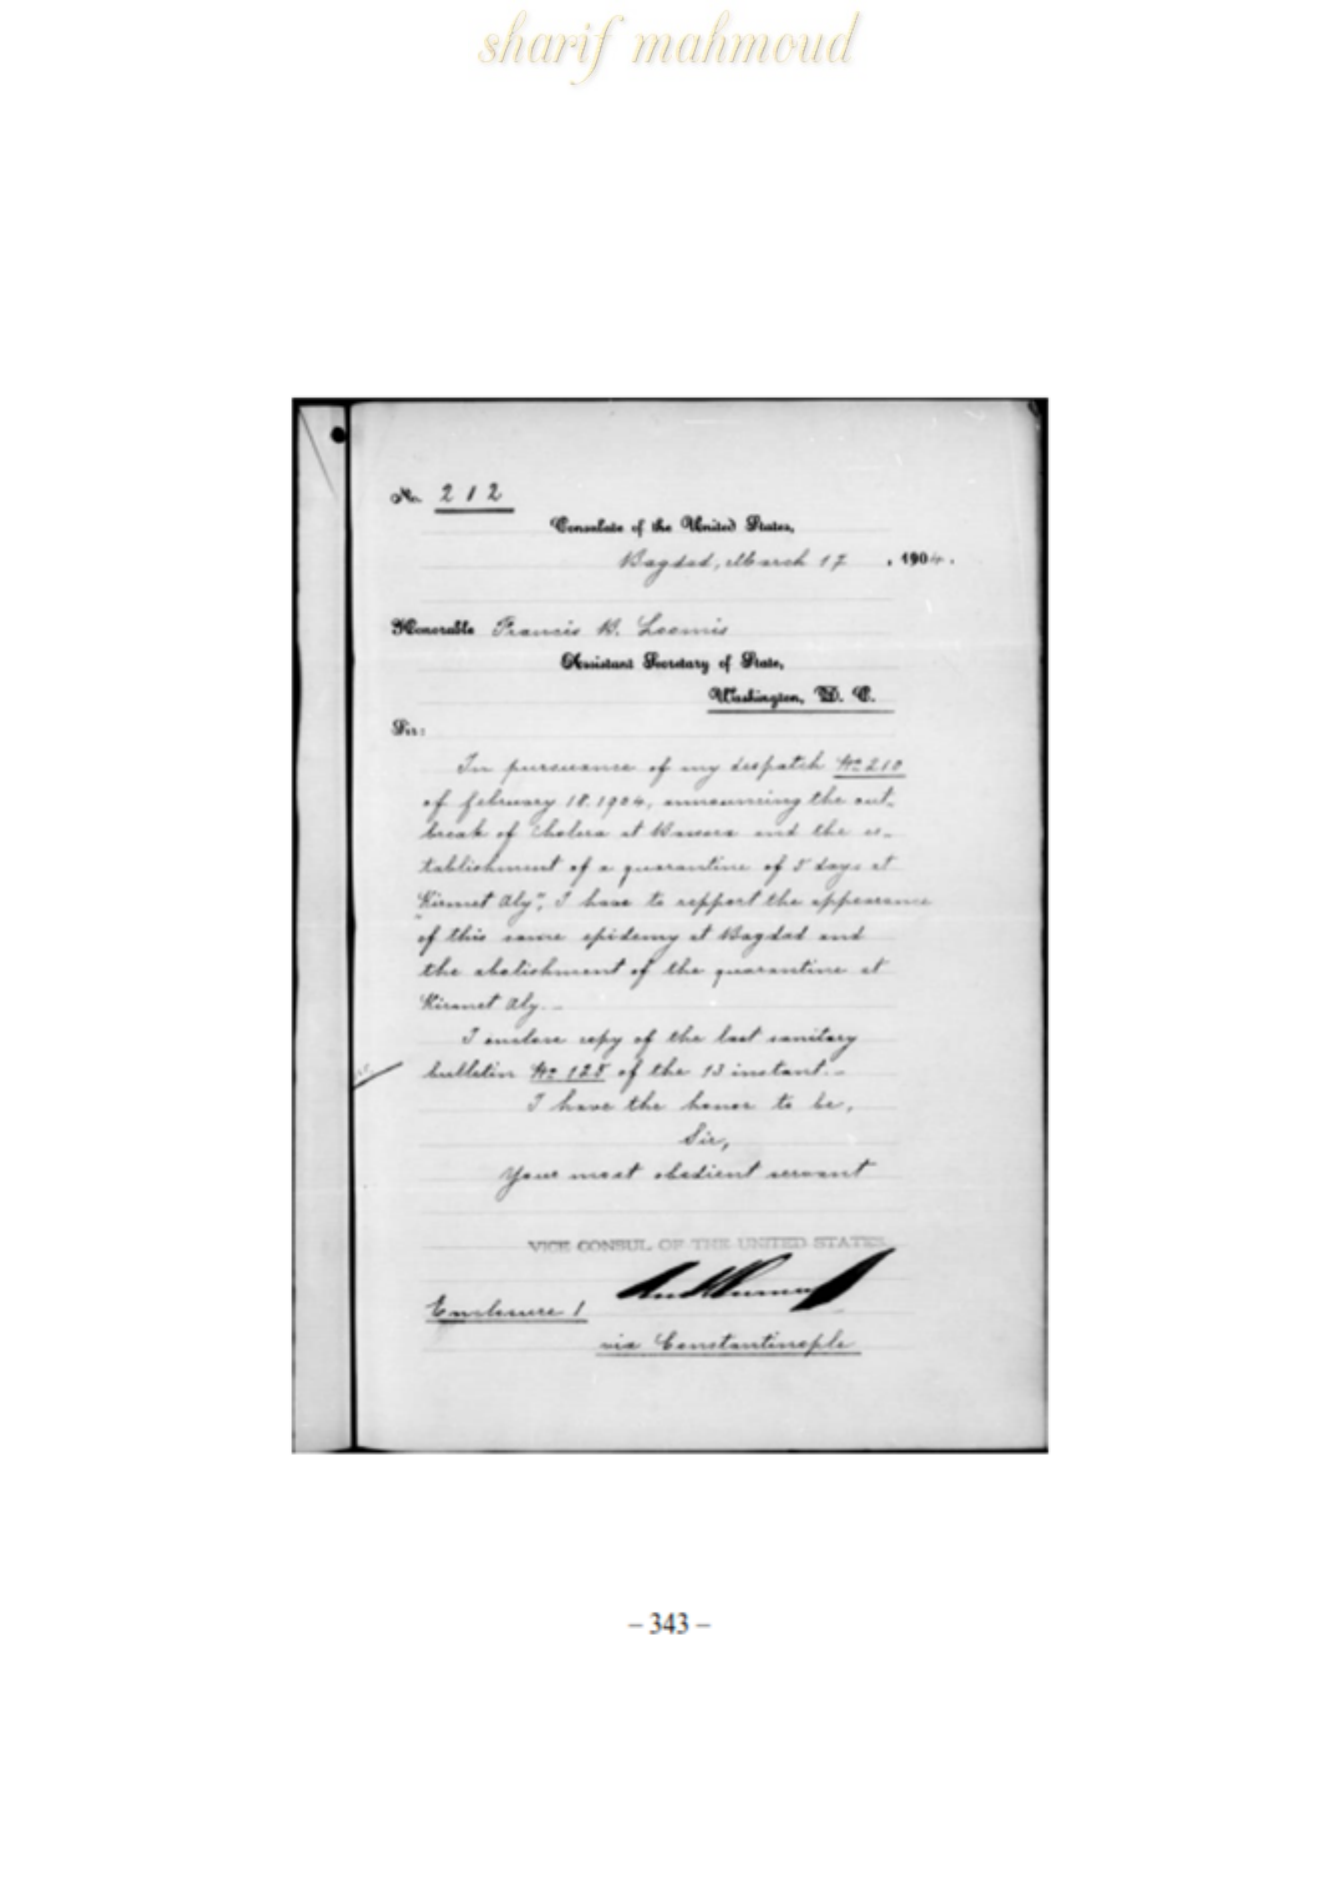 sharif mahmoud
No. 212
Consulate of the United States,
Bagdad, March 17, 1904.
Honorable Francis B. Loomis
Assistant Secretary of State,
Washington, D. C.
Sir:
In pursuance of my dispatch No 210
of february 18. 1904, announcing the out-
break of Cholera at Bussora and the es-
tablishment of a quarantine of 5 days at
"Kirmet Aly", I have to repport the appearance
of this same epidemy at Bagdad and
the abolishment of the quarantine at
Kirmet Aly.-
I enclose copy of the last sanitary
bulletin No 125 of the 13 instant.-
I have the honor to be,
Sir,
Your most obedient servant
VICE CONSUL OF THE UNITED STATES.
Enclosure 1
via Constantinople
– 343 –